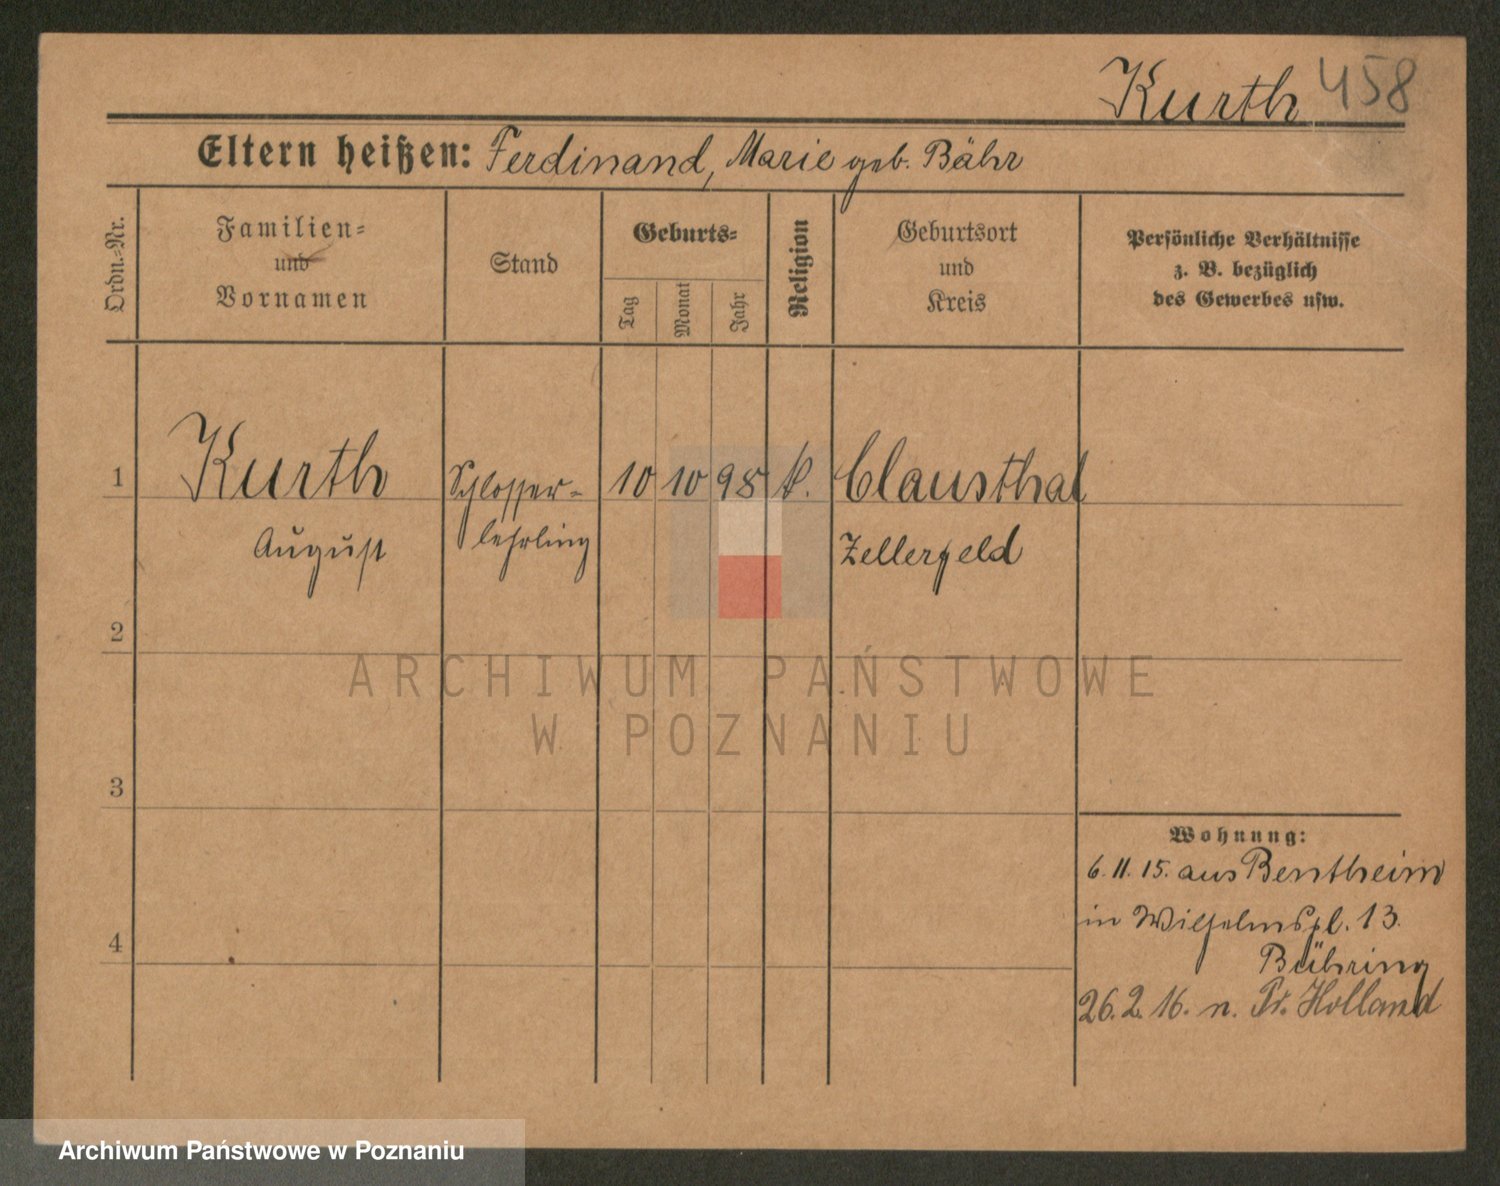 Kurth 458
Eltern heißen: Ferdinand, Marie geb. Bähr
Ordn.-Nr.
Familien-
und
Vornamen
Stand
Geburts-
Tag
Monat
Jahr
Religion
Geburtsort
und
Kreis
Persönliche Verhältnisse
z. B. bezüglich
des Gewerbes usw.
1 Kurth Schlosser- 10 10 98 k. Clausthal
August lehrling Zellerfeld
2
3
4
Wohnung:
6. 11. 15. aus Bentheim
in Wilhelmspl. 13.
Bühring
26. 2. 16. n. Pr. Holland
ARCHIWUM PAŃSTWOWE
W POZNANIU
Archiwum Państwowe w Poznaniu